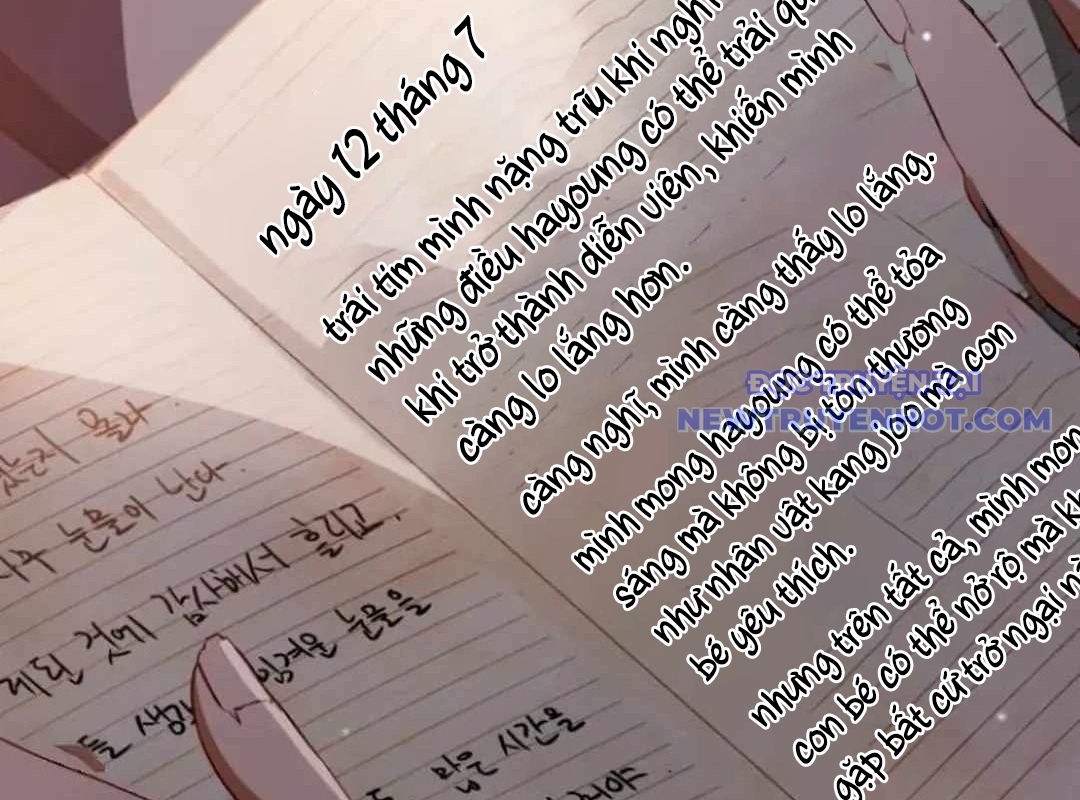 ngày 12 tháng 7
trái tim mình nặng trĩu khi nghĩ
những điều hayoung có thể trải
khi trở thành diễn viên, khiến mình
càng lo lắng hơn.
càng nghĩ, mình càng thấy lo lắng.
mình mong hayoung có thể tỏa
sáng mà không bị tổn thương
như nhân vật kang joo mà con
bé yêu thích.
nhưng trên tất cả, mình mong
con bé có thể nở rộ mà
gặp bất cứ trở ngại
ĐỌC TRUYỆN TẠI
NEWTRUYENHOT.COM
몰라
눈물이 난다.
것에 감사해서 흘리고,
눈물을
맑은 시간을